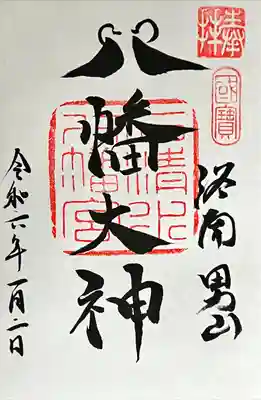 奉拝
国寳
洛南 男山
八幡大神
石清水八幡宮
令和六年一月二日